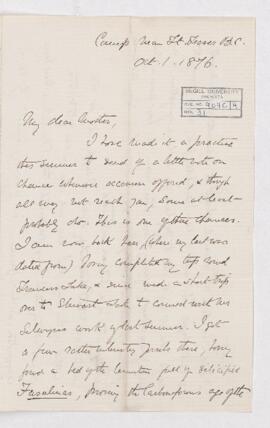 Camp Near Ft. Fraser B.C.
Oct. 1. 1876.
McGILL UNIVERSITY
ARCHIVES
My dear Mother,
I have made it a practice
this summer to send of a letter note on
chance whenever occasion offered, & though
all may not reach you, some at least
probably do. This is one of these chances.
I am now back here (where my last was
dated from) having completed my trip round
Francois Lake, & made a short trip
over to Stewart Lake to connect with
Selwyns work of last summer. I got
a few rather interesting fossils there, having
found a bed of the limestone full of
Fusulinas, proving the Carboniferous age of the